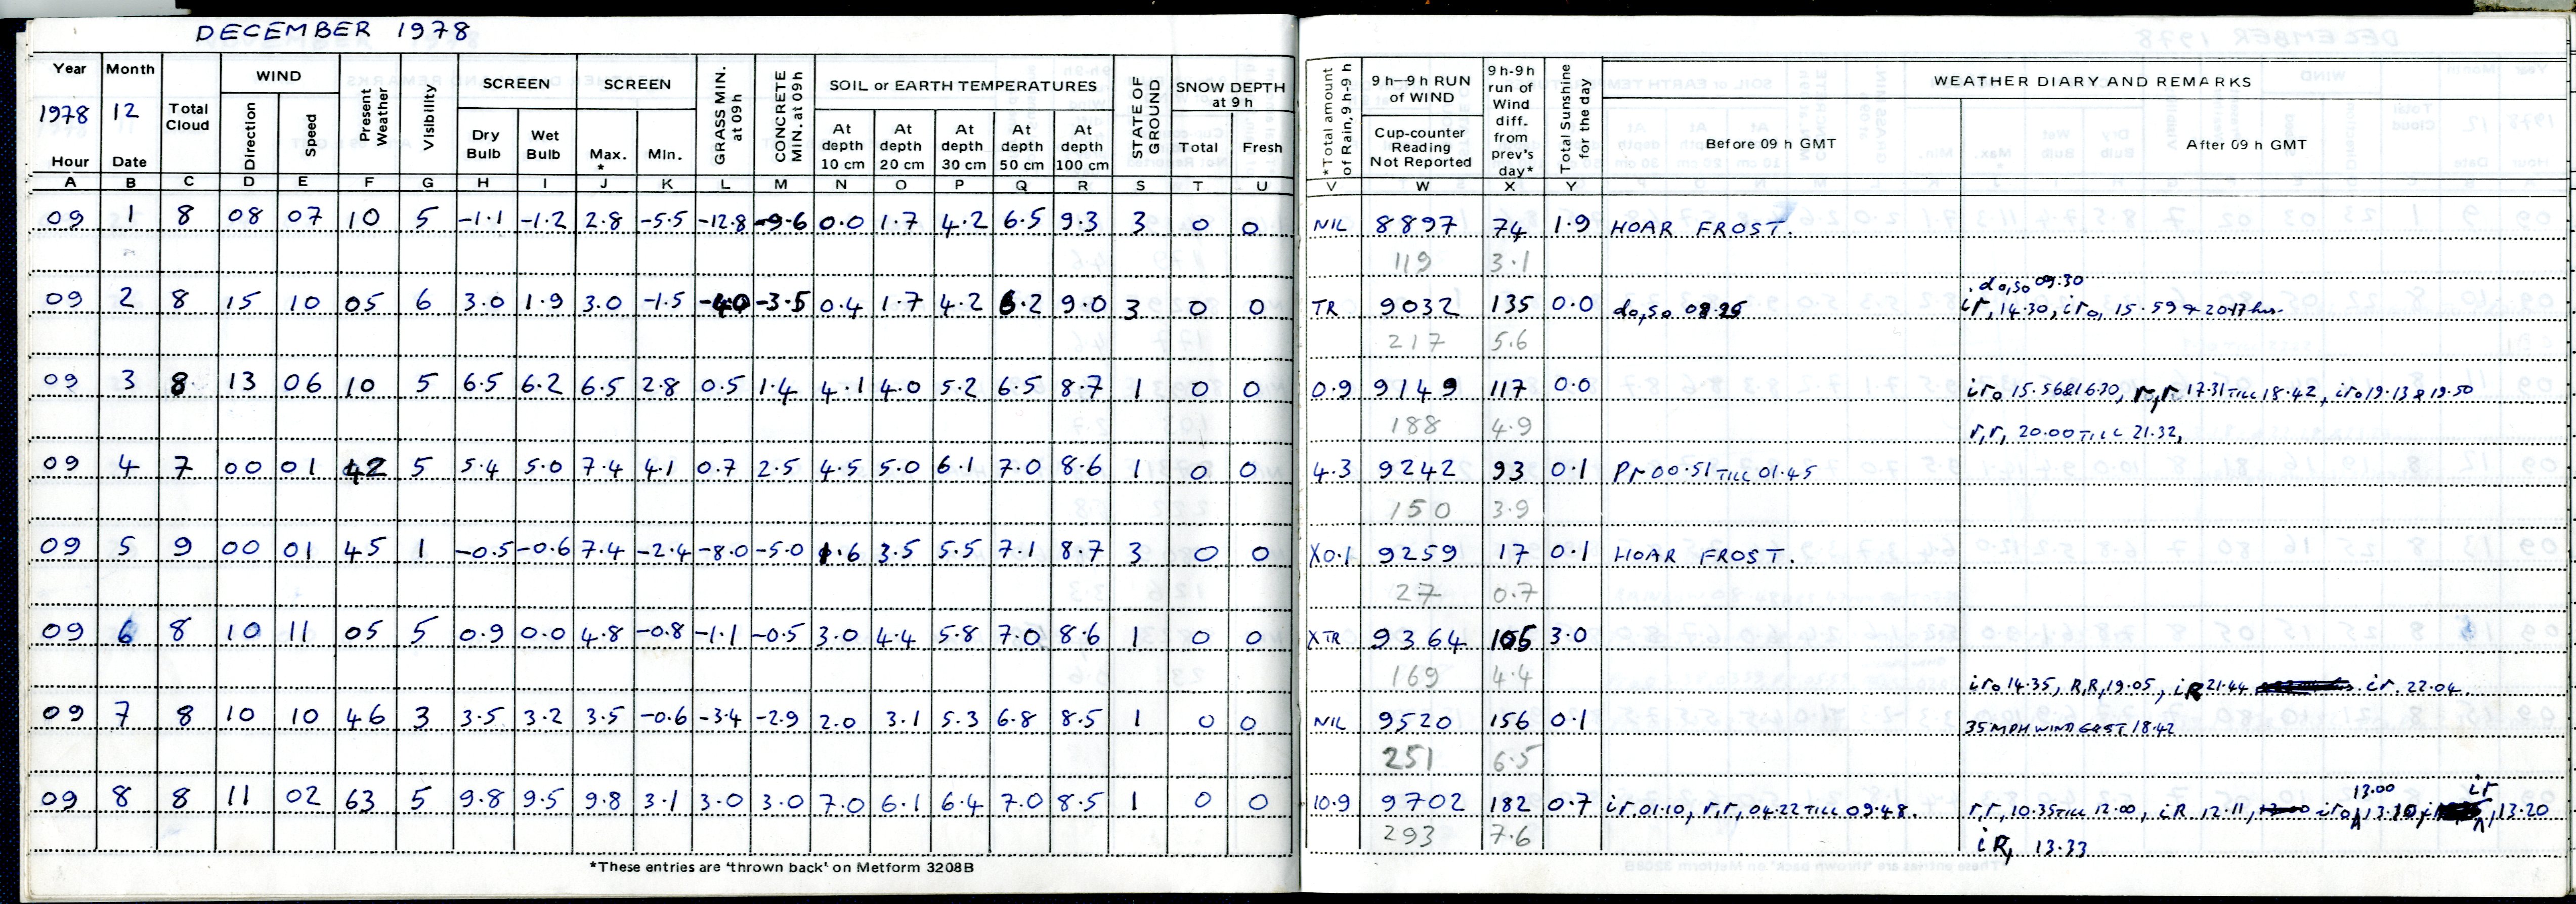 DECEMBER 1978
Year Month WIND SCREEN SCREEN SOIL or EARTH TEMPERATURES SNOW DEPTH at 9 h
1978 12 Total Cloud Direction Speed Present Weather Visibility Dry Bulb Wet Bulb Max. * Min. GRASS MIN. at 09h CONCRETE MIN. at 09h At depth 10 cm At depth 20 cm At depth 30 cm At depth 50 cm At depth 100 cm STATE OF GROUND Total Fresh
Hour Date
*Total amount of Rain, 9h-9 h 9 h—9 h RUN of WIND Cup-counter Reading Not Reported 9 h-9 h run of Wind diff. from prev's day* Total Sunshine for the day WEATHER DIARY AND REMARKS
Before 09 h GMT After 09 h GMT
A B C D E F G H I J K L M N O P Q R S T U V W X Y
09 1 8 08 07 10 5 -1.1 -1.2 2.8 -5.5 -12.8 -9.6 0.0 1.7 4.2 6.5 9.3 3 0 0 NIL 8897 74 1.9 HOAR FROST.
119 3.1
do,so 09.30
09 2 8 15 10 05 6 3.0 1.9 3.0 -1.5 -4.0 -3.5 0.4 1.7 4.2 6.2 9.0 3 0 0 TR 9032 135 0.0 do,so ir, 14.30, iro, 15.59 & 2047hrs.
217 5.6
09 3 8 13 06 10 5 6.5 6.2 6.5 2.8 0.5 1.4 4.1 4.0 5.2 6.5 8.7 1 0 0 0.9 9149 117 0.0 iro 15.56&16.30, r,r, 17.31 TILL 18.42, iro 19.13 & 19.50
188 4.9 r,r, 20.00 TILL 21.32,
09 4 7 00 01 42 5 5.4 5.0 7.4 4.1 0.7 2.5 4.5 5.0 6.1 7.0 8.6 1 0 0 4.3 9242 93 0.1 Pr 00.51 TILL 01.45
150 3.9
09 5 9 00 01 45 1 -0.5 -0.6 7.4 -2.4 -8.0 -5.0 1.6 3.5 5.5 7.1 8.7 3 0 0 X0.1 9259 17 0.1 HOAR FROST.
27 0.7
09 6 8 10 11 05 5 0.9 0.0 4.8 -0.8 -1.1 -0.5 3.0 4.4 5.8 7.0 8.6 1 0 0 XTR 9364 105 3.0
169 4.4 iro 14.35, R,R, 19.05, iR 21.44 ir. 22.04.
09 7 8 10 10 46 3 3.5 3.2 3.5 -0.6 -3.4 -2.9 2.0 3.1 5.3 6.8 8.5 1 0 0 NIL 9520 156 0.1 35 MPH WIND GUST 18.42
251 6.5
13.00 ir
09 8 8 11 02 63 5 9.8 9.5 9.8 3.1 3.0 3.0 7.0 6.1 6.4 7.0 8.5 1 0 0 10.9 9702 182 0.7 ir.01.10, r,r, 04.22 TILL 09.48. r,r, 10.35 TILL 12.00, iR 12.11, iro, 13.10, 13.20
293 7.6 iR, 13.33
*These entries are 'thrown back' on Metform 3208B